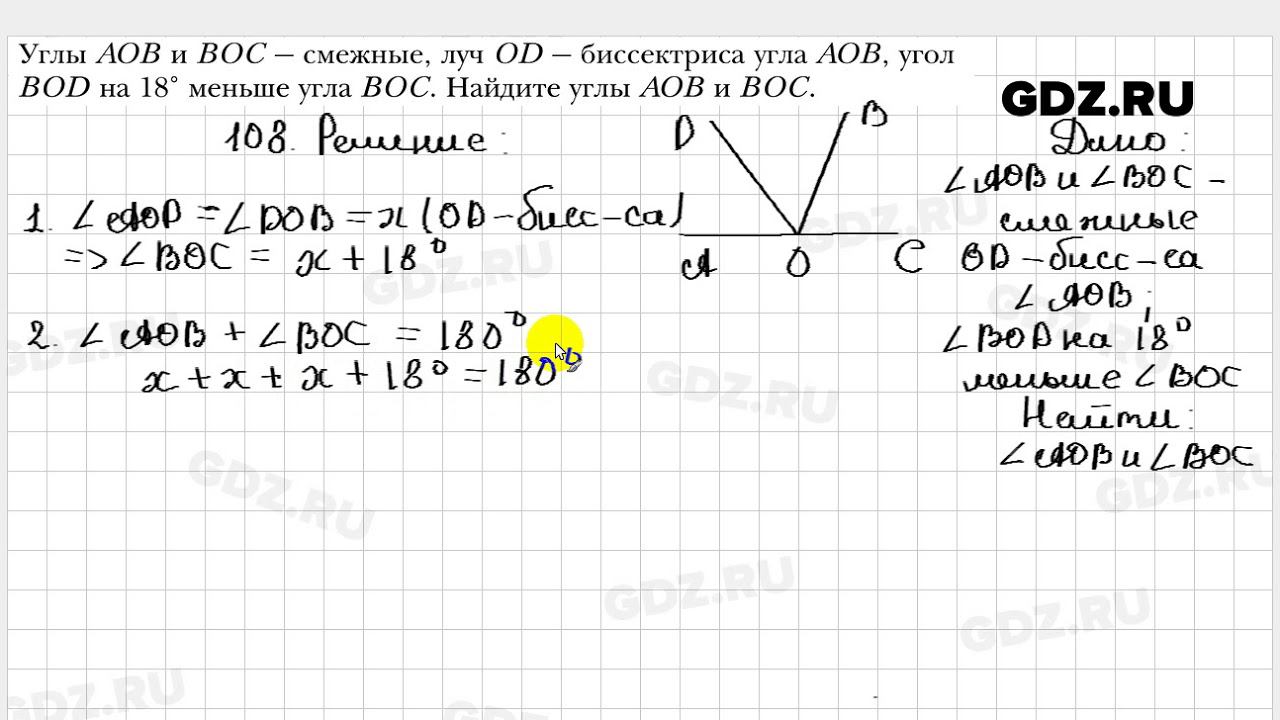 Углы AOB и BOC — смежные, луч OD — биссектриса угла AOB, угол
BOD на 18° меньше угла BOC. Найдите углы AOB и BOC.
GDZ.RU
108. Решение:
1. ∠AOD = ∠DOB = x (OD-бисс-са)
=> ∠BOC = x + 18°
2. ∠AOB + ∠BOC = 180°
x + x + x + 18° = 180°
D B
A O C
Дано:
∠AOB и ∠BOC -
смежные
OD-бисс-са
∠AOB;
∠BOD на 18°
меньше ∠BOC
Найти:
∠AOB и ∠BOC
GDZ.RU
GDZ.RU
GDZ.RU
GDZ.RU
GDZ.RU
GDZ.RU
GDZ.RU
GDZ.RU
GDZ.RU
GDZ.RU
GDZ.RU